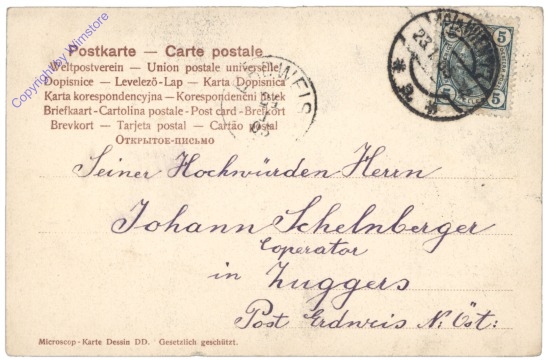 Copyright by Wimstore
Postkarte — Carte postale
Weltpostverein — Union postale universelle
Dopisnice - Levelező-Lap - Karta Dopisnica
Karta korespondencyjna — Korespondenčni listek
Briefkaart - Cartolina postale - Post card - Brevkort
Brevkort — Tarjeta postal — Cartão postal
Открытое-письмо
23
5 5
5 5
Seiner Hochwürden Herrn
Johann Schelnberger
Coperator
in Zuggers
Post Erdweis N: Öst:
Microscop-Karte Dessin DD. Gesetzlich geschützt.